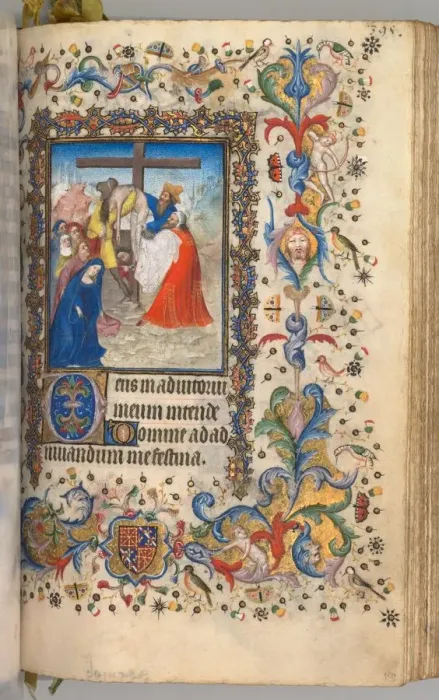 98.
Deus in adiutoriu
meum intende
Domine ad ad
iuuandum me festina.